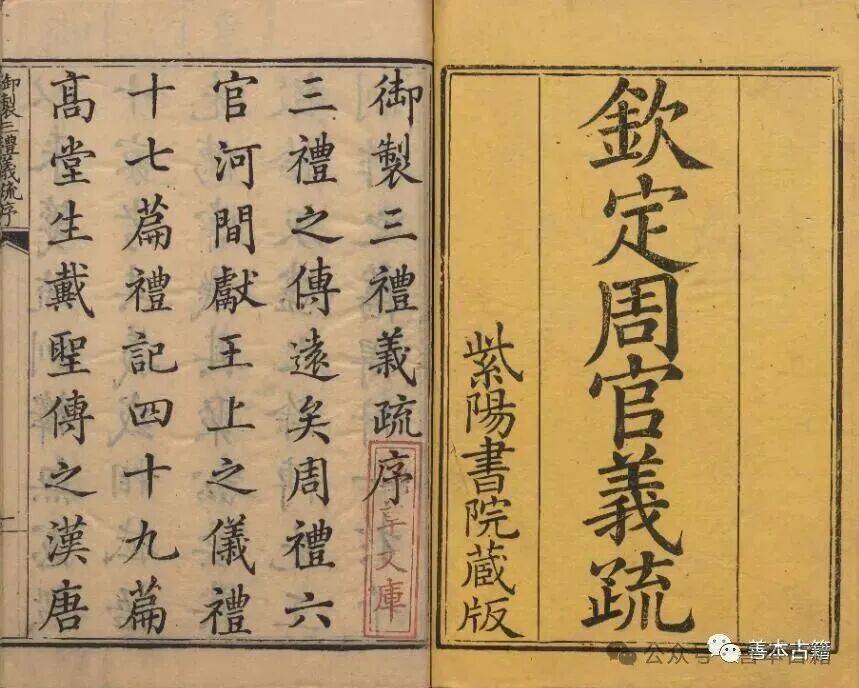 欽定周官義疏
紫陽書院藏版
御製三禮義疏序
三禮之傳遠矣周禮六
官河間獻王上之儀禮
十七篇禮記四十九篇
高堂生戴聖傳之漢唐
御製三禮義疏序
一
文庫
公众号
善本古籍
善本古籍